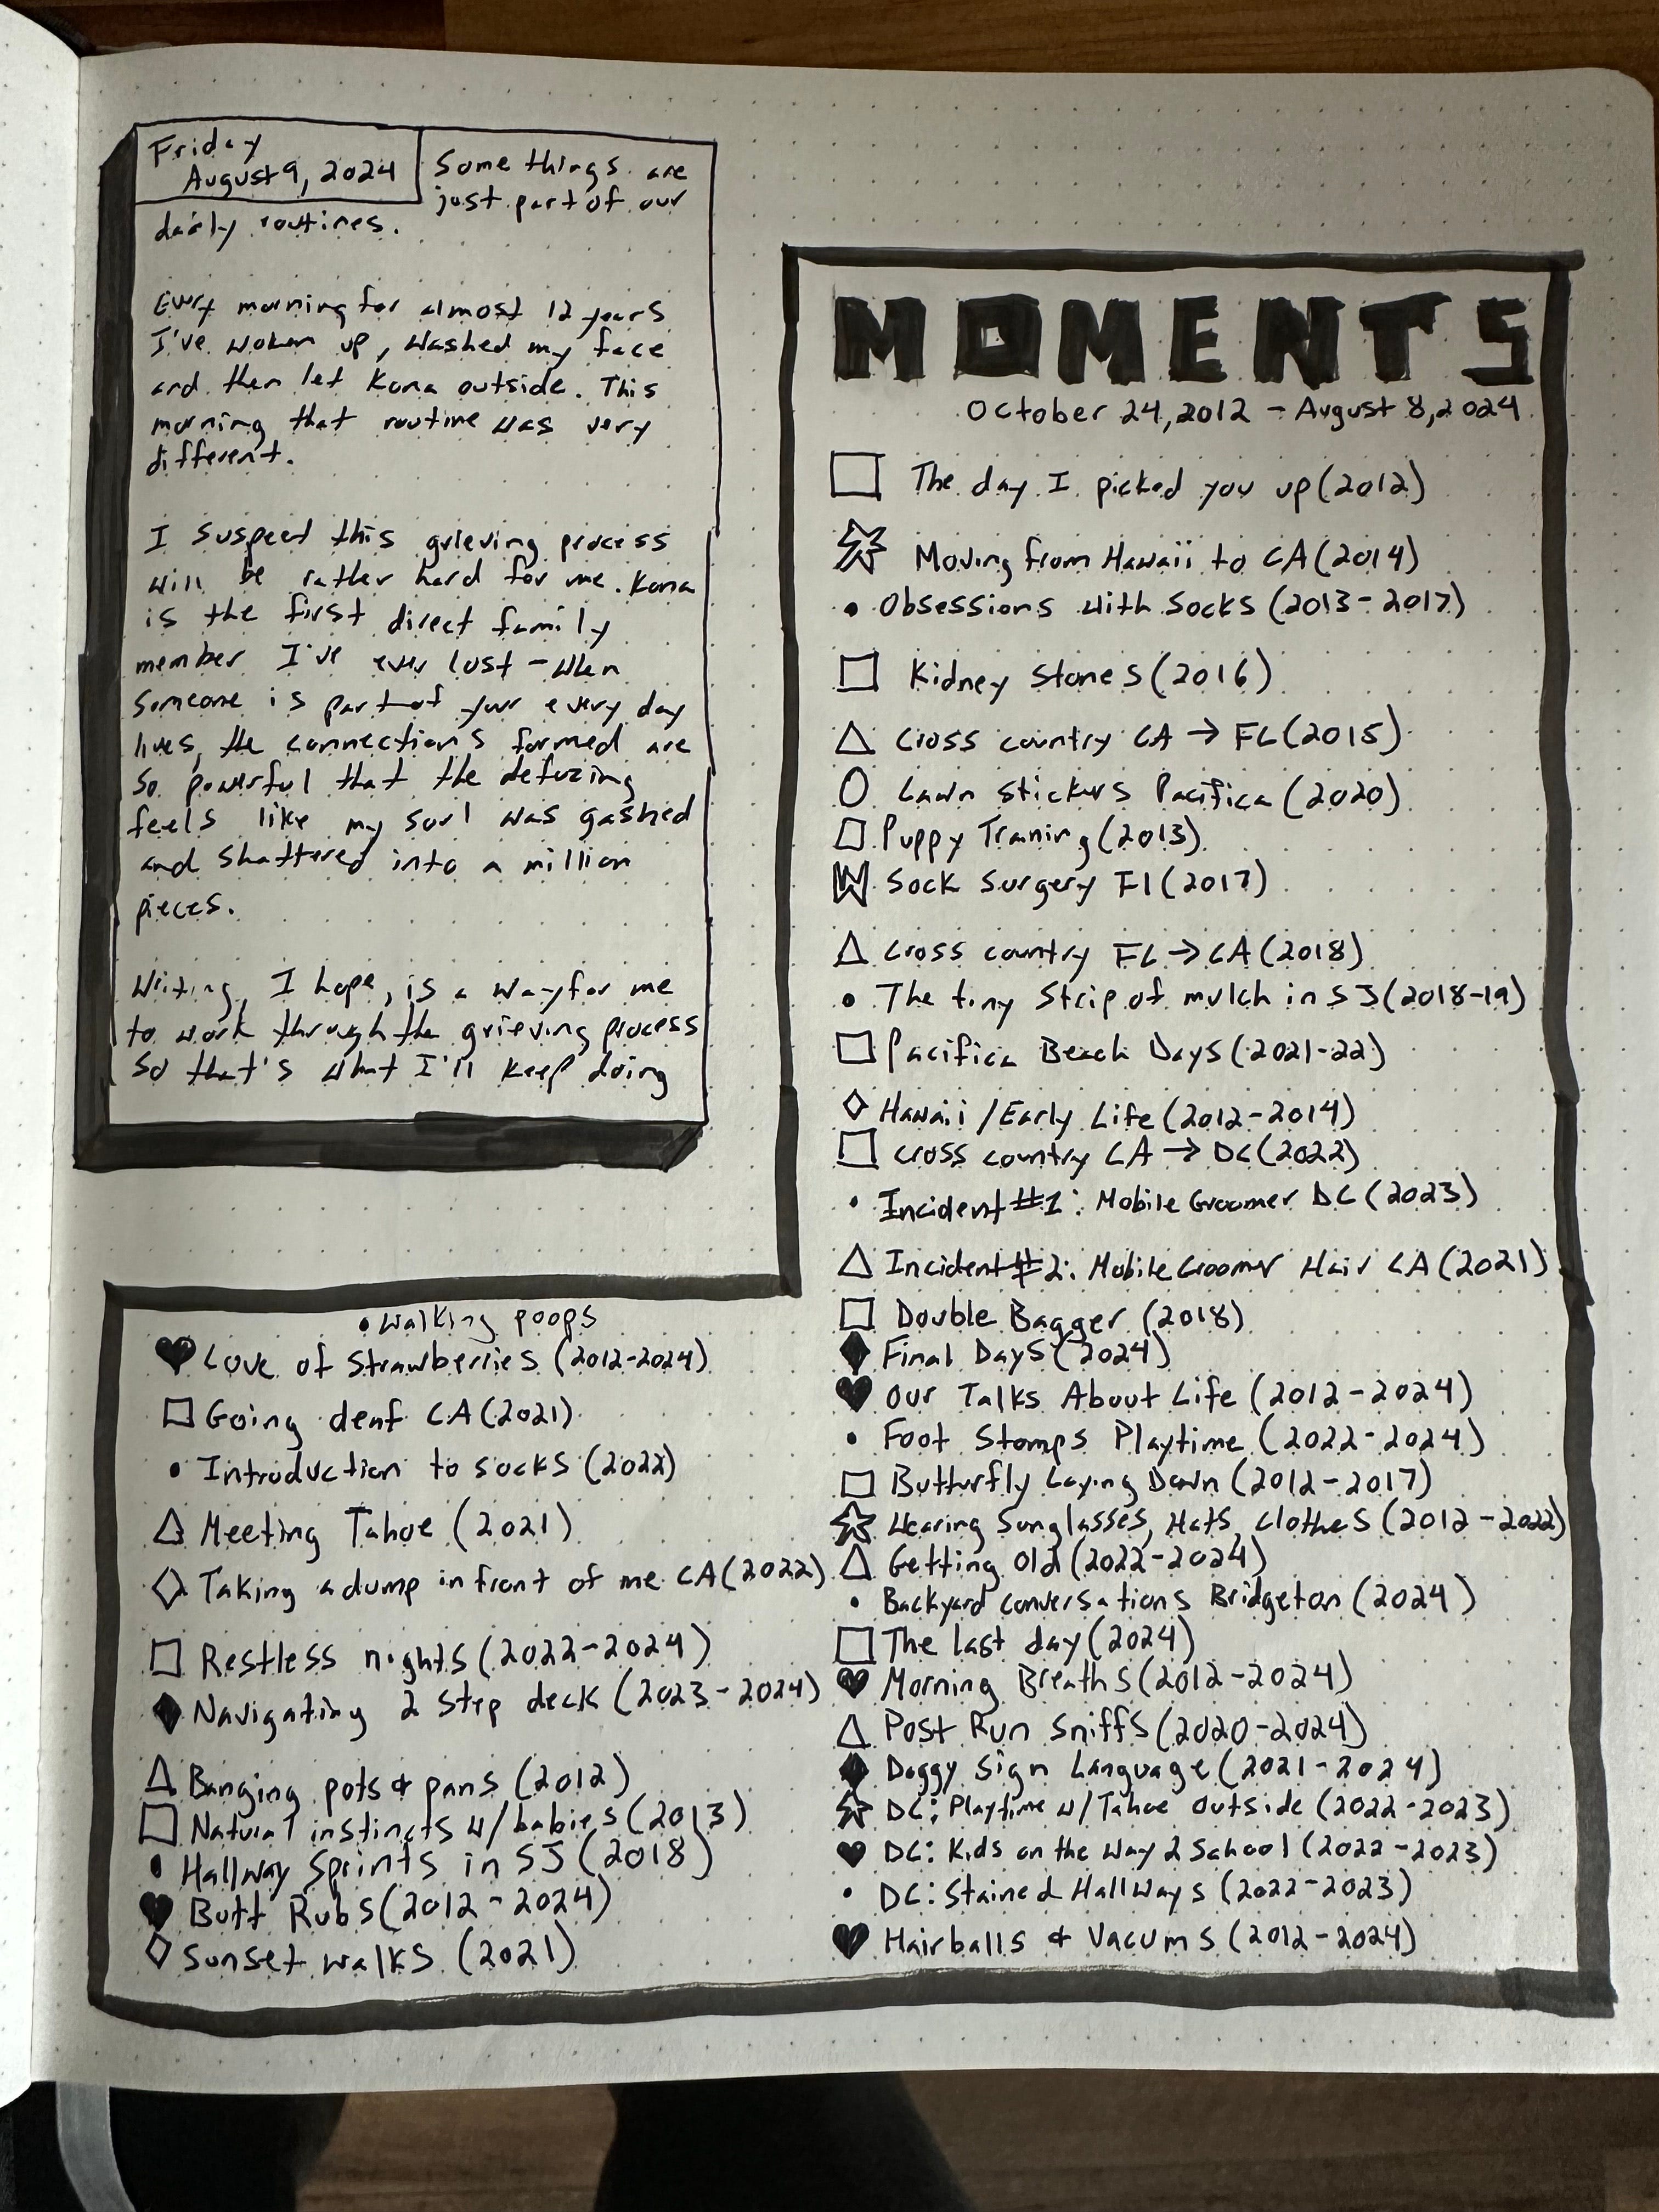 Friday
August 9, 2024
Some things are
just part of our
daily routines.
Every morning for almost 12 years
I've woken up, washed my face
and then let Kona outside. This
morning that routine was very
different.
I suspect this grieving process
will be rather hard for me. Kona
is the first direct family
member I've ever lost - when
someone is part of your every day
lives, the connections formed are
so powerful that the defuzing
feels like my soul was gashed
and shattered into a million
pieces.
Writing, I hope, is a way for me
to work through the grieving process
so that's what I'll keep doing
MOMENTS
October 24, 2012 - August 8, 2024
The day I picked you up (2012)
Moving from Hawaii to CA (2014)
• Obsessions with Socks (2013-2017)
Kidney Stones (2016)
Cross country CA → FL (2015)
Lawn stickers Pacifica (2020)
Puppy Traning (2013)
Sock Surgery Fl (2017)
Cross country FL → CA (2018)
• The tiny Strip of mulch in SJ (2018-19)
Pacifica Beach Days (2021-22)
Hawaii / Early Life (2012-2014)
Cross country CA → DC (2022)
• Incident #1: Mobile Groomer DC (2023)
Incident #2: Mobile Groomer Hair CA (2021)
Double Bagger (2018)
Final Days (2024)
Our Talks About Life (2012-2024)
• Foot Stomps Playtime (2022-2024)
Butterfly Laying Down (2012-2017)
Wearing Sunglasses, Hats, Clothes (2012-2022)
Getting Old (2022-2024)
• Backyard conversations Bridgeton (2024)
The last day (2024)
Morning Breaths (2012-2024)
Post Run Sniffs (2020-2024)
Doggy Sign Language (2021-2024)
DC: Playtime w/Tahoe Outside (2022-2023)
DC: Kids on the Way 2 School (2022-2023)
• DC: Stained Hallways (2022-2023)
Hairballs & Vacums (2012-2024)
• Walking poops
Love of Strawberries (2012-2024)
Going deaf CA (2021)
• Introduction to socks (2022)
Meeting Tahoe (2021)
Taking a dump in front of me CA (2022)
Restless nights (2022-2024)
Navigating 2 Step deck (2023-2024)
Banging pots & pans (2012)
Natural instincts w/babies (2013)
• Hallway Sprints in SJ (2018)
Butt Rubs (2012-2024)
Sunset walks (2021)